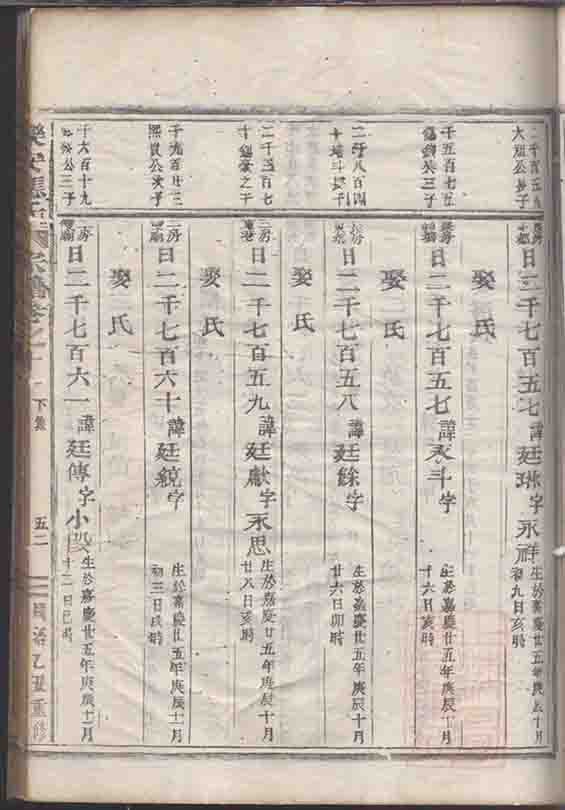 二千五百五九
大 公 子
日二千七百五七諱廷琳字永祥
生於嘉慶廿五年庚辰十月
初九日亥時
娶氏
千五百七五
三子
日二千七百五七諱永斗字
生於嘉慶廿五年庚辰十月
十六日亥時
娶氏
二千八百四
日二千七百五八諱廷餘字
生於嘉慶廿五年庚辰十月
廿六日卯時
娶氏
二千三百七
十 之子
二房
日二千七百五九諱廷獻字永思
生於嘉慶廿五年庚辰十月
廿八日亥時
娶氏
熙 公次子
二房
日二千七百六十諱廷鏡字
生於嘉慶廿五年庚辰十一月
初三日戌時
娶氏
千六百十九
公三子
二房
日二千七百六一諱廷傳字小
生於嘉慶廿五年庚辰十一月
十二日巳時
樂安 氏宗譜卷
下集
五二
同治乙丑重修